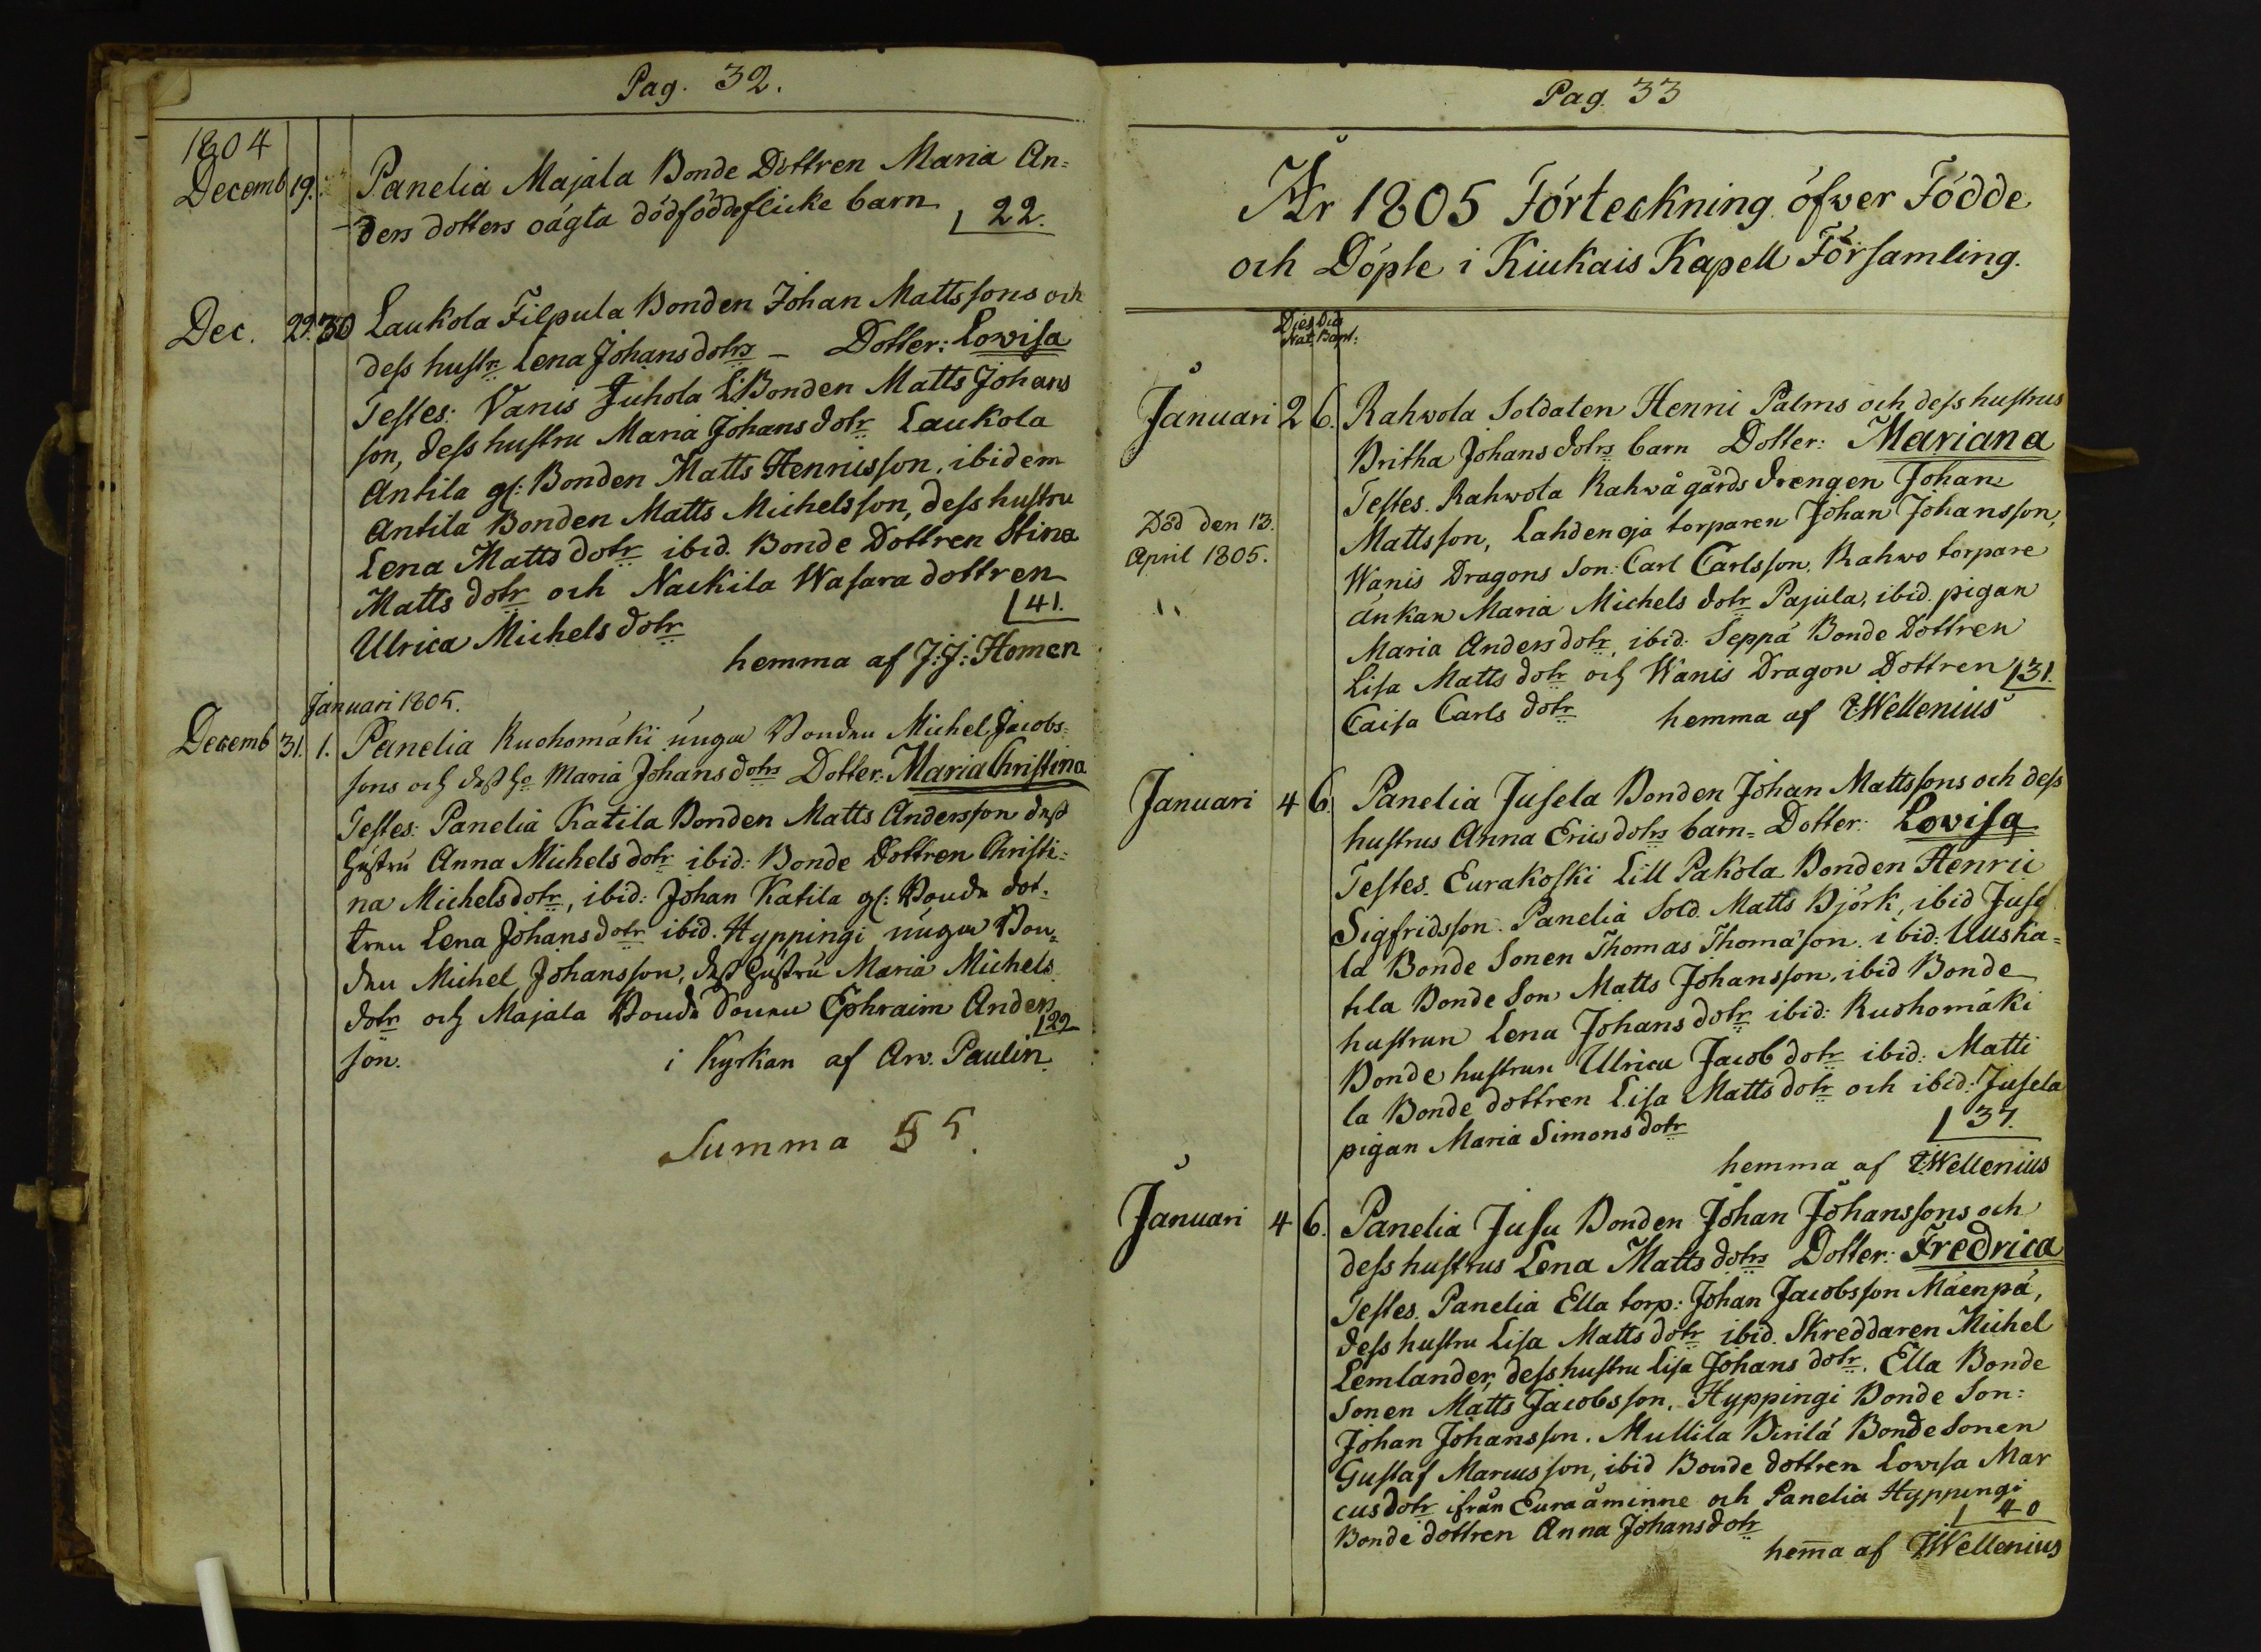 Pag. 32.
1804
Decemb 19. Panelia Majala Bonde Dottren Maria An=
ders dotters oägta dödföddeflicke barn 22.
Dec. 29. 30 Laukola Filpula Bonden Johan Mattssons och
dess hustr Lena Johansdotrs – Dotter: Lovisa
Testes: Vanis Juhola L: Bonden Matts Johans
son, dess hustru Maria Johansdotr Laukola
Antila gl: Bonden Matts Henricsson, ibidem
Antila Bonden Matts Michelsson, dess hustru
Lena Mattsdotr ibid. Bonde Dottren Stina
Matts dotr och Nackila Wasara dottren
Ulrica Michels dotr 41.
hemma af J:J: Homen
Januari 1805.
Decemb 31. 1. Panelia Ruohomäki unga Bonden Michel Jacobs=
sons och dess ho Maria Johansdotrs Dotter: Maria Christina
Testes: Panelia Katila Bonden Matts Andersson dess
hustru Anna Michels dotr ibid: Bonde Dottren Christi=
na Michelsdotr, ibid: Johan Katila gl: Bonde dot=
tren Lena Johansdotr ibid. Hyppingi unga Bon=
den Michel Johansson, dess hustru Maria Michels
dotr och Majala Bonde Sonen Ephraim Anders
son. 29
i Kyrkan af Arv. Paulin.
Summa 55.
Pag. 33
År 1805 Förteckning öfver Födde
och Döpte i Kiukais Kapell Församling.
Dies Nat: Die Bapt:
Januari 2 6. Rahvola Soldaten Henric Palms och dess hustrus
Britha Johansdotrs barn Dotter: Mariana
Testes. Rahvola Rahvå gårds drengen Johan
Död den 13. April 1805.
Mattsson, Lahdenoja torparen Johan Johansson,
Wanis Dragons Son: Carl Carlsson. Rahwo torpare
änkan Maria Michels dotr Pajula, ibid. pigan
Maria Andersdotr, ibid: Seppä Bonde Dottren
Lisa Matts dotr och Wanis Dragon Dottren
Caisa Carls dotr 31.
hemma af E:Wellenius
Januari 4 6. Panelia Jusela Bonden Johan Mattssons och dess
hustrus Anna Ericsdotrs barn= Dotter: Lovisa
Testes. Eurakoski Lill Pakola Bonden Henric
Sigfridsson. Panelia Sold. Matts Björk, ibid Juse
la Bonde Sonen Thomas Thomasson. ibid: Uuska=
tila Bonde Son Matts Johansson, ibid Bonde
hustrun Lena Johans dotr ibid: Ruohomäki
Bonde hustrun Ulrica Jacob dotr ibid: Matti
la Bonde dottren Lisa Matts dotr och ibid: Jusela
pigan Maria Simonsdotr 37.
hemma af E:Wellenius
Januari 4 6. Panelia Jusu Bonden Johan Johanssons och
dess hustrus Lena Matts dotrs Dotter: Fredrica
Testes. Panelia Ella torp: Johan Jacobsson Mäenpä,
dess hustru Lisa Matts dotr ibid. Skreddaren Michel
Lemlander, dess hustru Lisa Johans dotr. Ella Bonde
Sonen Matts Jacobsson. Hyppingi Bonde Son:
Johan Johansson. Mullila Birilä Bonde Sonen
Gustaf Marcusson, ibid Bonde dottren Lovisa Mar
cusdotr ifrån Euraåminne och Panelia Hyppingi
Bonde dottren Anna Johansdotr 40
hem̄a af E:Wellenius